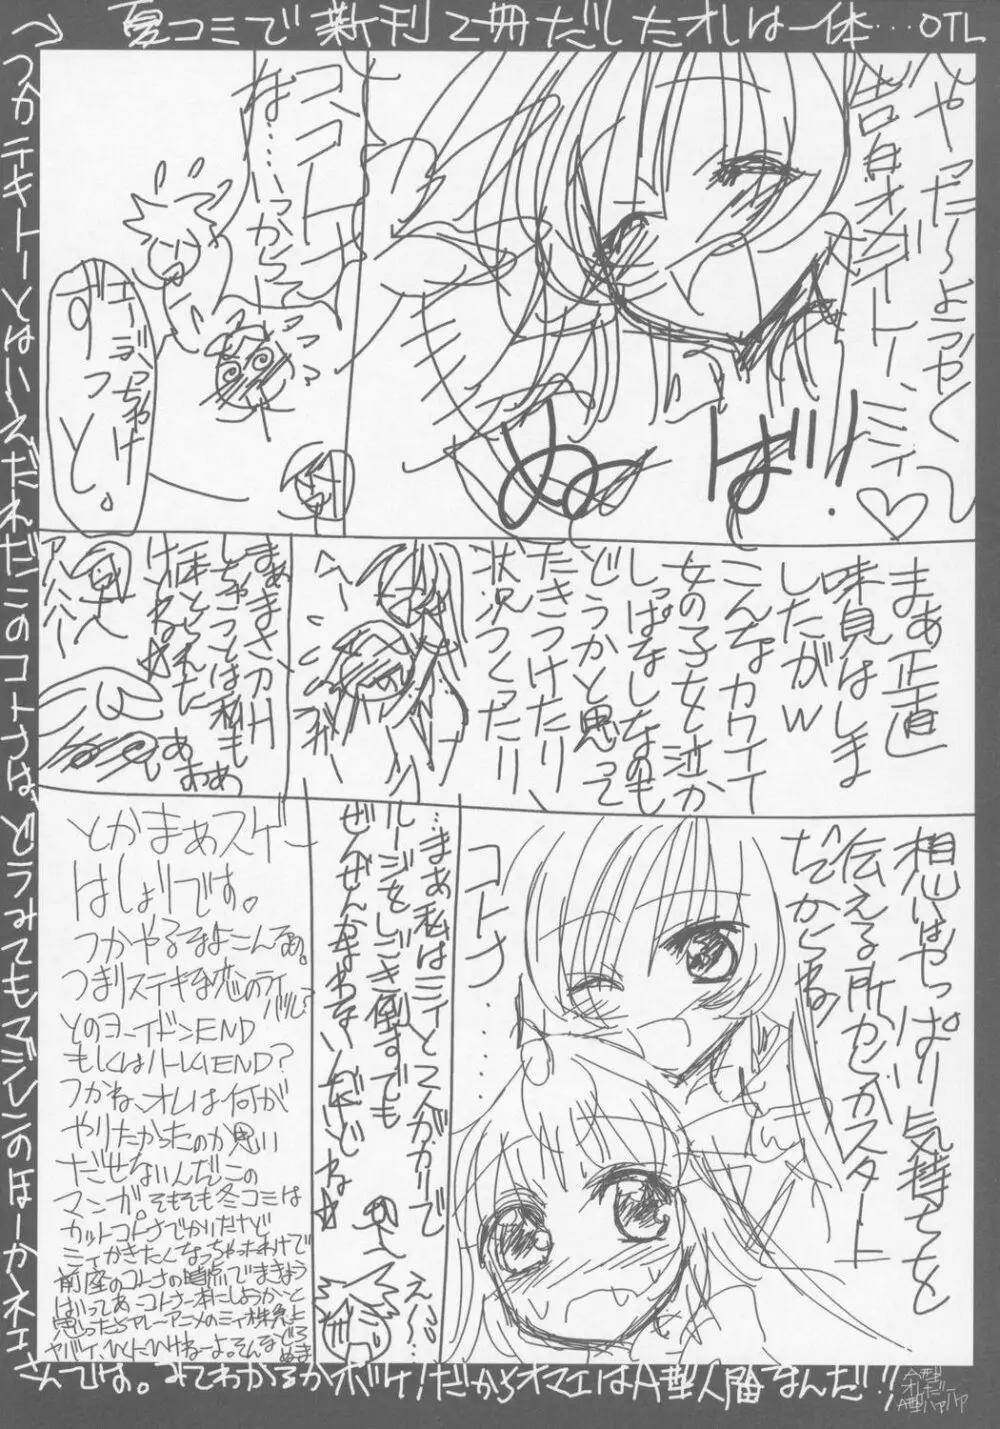 夏コミで新刊2冊だしたオレは一体…OTL
やった〜ようやく
告白オメデトー、ミィ♡
ぬ
ば!!
コ、コトナ
な……いつからって
ぶっちゃけ
ずっと。
まぁ正直
味見はしま
したがw
こんなカワイイ
女の子、女と泣か
しっぱなしなのも
どうかと思って
たきつけたり
状況つくったり
まぁまさかH
しちゃうとは私も
アハハハー
想いはやっぱり気持ちを
伝える所からがスタート
だからね
コトナ……
…まぁ私はミィと二人がかりで
ルージをしごき倒すでも
ぜんぜんかまわないんだけどね☆
え〜…
とかまぁスゲー
はしょりです。
つかやるなよこんなぁ。
つまりステキな恋のライバル?
とのヨーイドンEND
もしくはハーレムEND?
つかね、オレは何が
やりたかったのか思い
だせないんだこの
マンガ。そもそも冬コミは
カットコトナでかいたけど
ミィかきたくなっちゃったわけで
前座のコトナの時点でまきょう
はいってあ、コトナ一本にしようかと
思ったらヤレ〜アニメのミィ株急上
つかテキトーとはいえだれだこのコトナは、どうみてもマジレンのほーかネエ
さんでは。みてわかるかボケ!だからオマエはA型人間なんだ!!